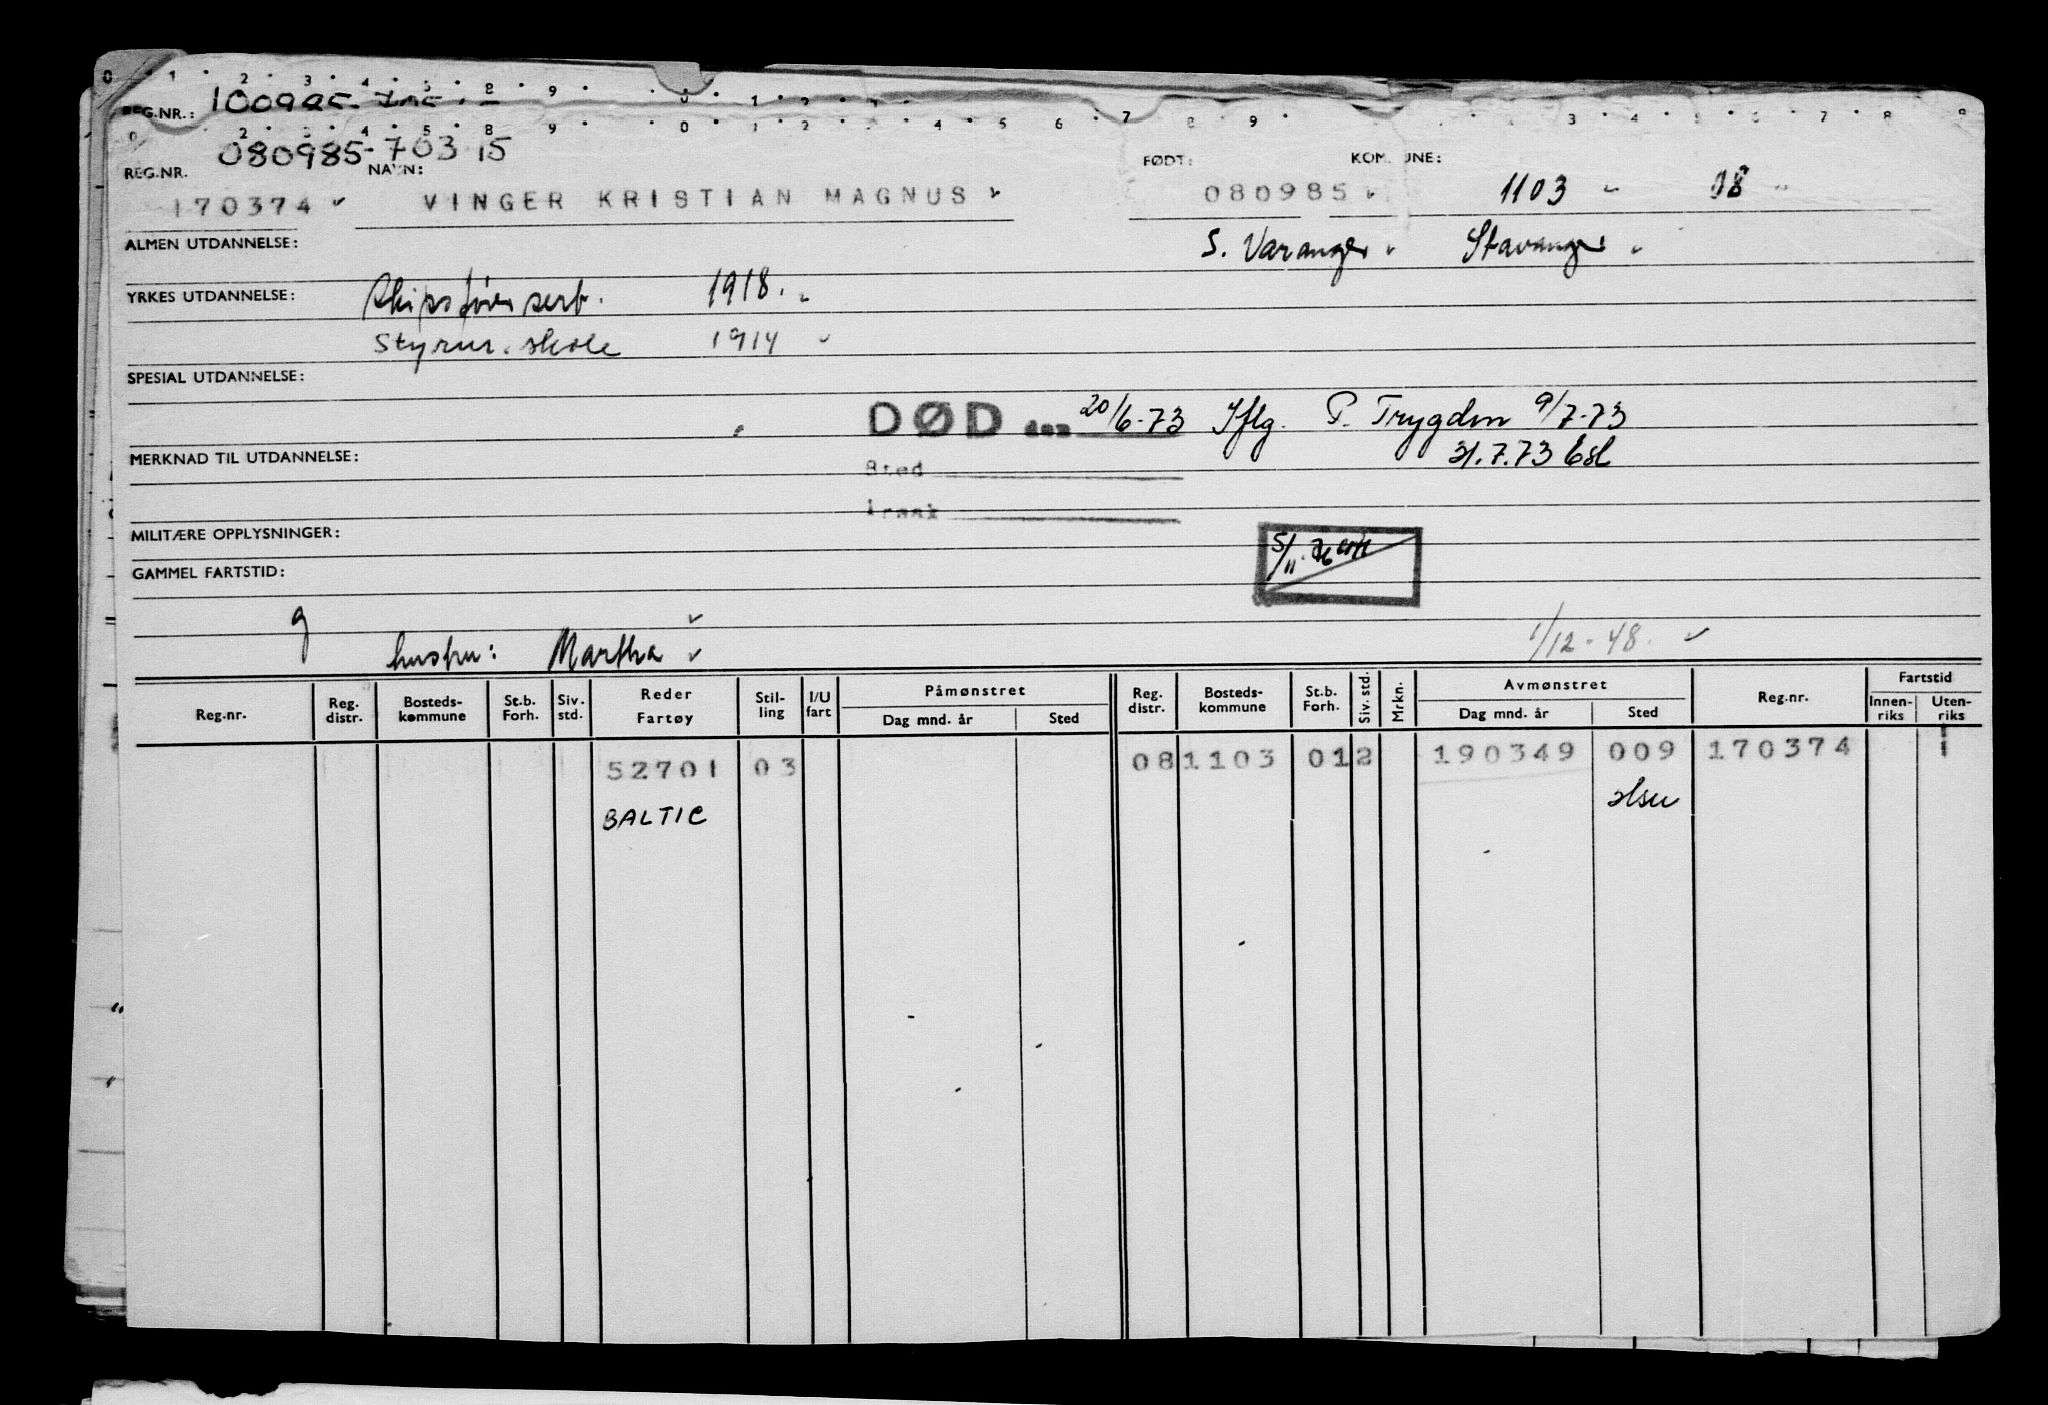 REG.NR.:
080985-70315
REG.NR. NAVN: FØDT: KOMMUNE:
170374 VINGER KRISTIAN MAGNUS 080985 1103 08
ALMEN UTDANNELSE: S. Varanger Stavanger
YRKES UTDANNELSE: Skipsfører serb. 1918.
Styrm. skole 1914
SPESIAL UTDANNELSE:
DØD den 20/6-73 Iflg. P. Trygden 9/7-73
MERKNAD TIL UTDANNELSE: 31.7.73 Esl
Sted
Årsak
MILITÆRE OPPLYSNINGER: 5/11
GAMMEL FARTSTID:
g
hustru: Martha 1/12-48.
Reg.nr. Reg. distr. Bosteds-kommune St.b. Forh. Siv. std. Reder Fartøy Stil-ling I/U fart Påmønstret Dag mnd. år Sted Reg. distr. Bosteds-kommune St.b. Forh. Siv. std. Mrkn. Avmønstret Dag mnd. år Sted Reg.nr. Fartstid Innen-riks Uten-riks
52701 03 08 1103 01 2 190349 009 170374
BALTIC